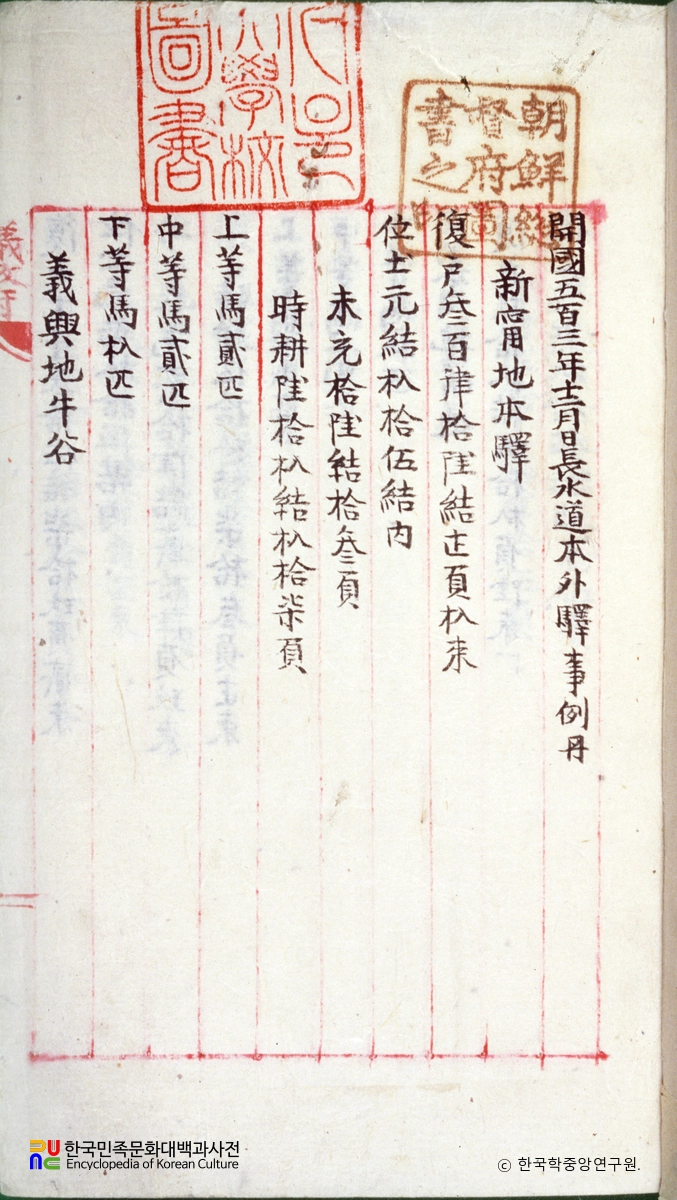 開國五百三年十二月日長水道本外驛事例冊
新寧地本驛
復戶叄百肆拾陸結卄五負捌束
位土元結捌拾伍結內
未充拾陸結拾叄負
時耕陸拾捌結捌拾柒負
上等馬貳匹
中等馬貳匹
下等馬捌匹
義興地牛谷
朝鮮總
督府圖
書之印
學校
圖書
한국민족문화대백과사전
Encyclopedia of Korean Culture
© 한국학중앙연구원.